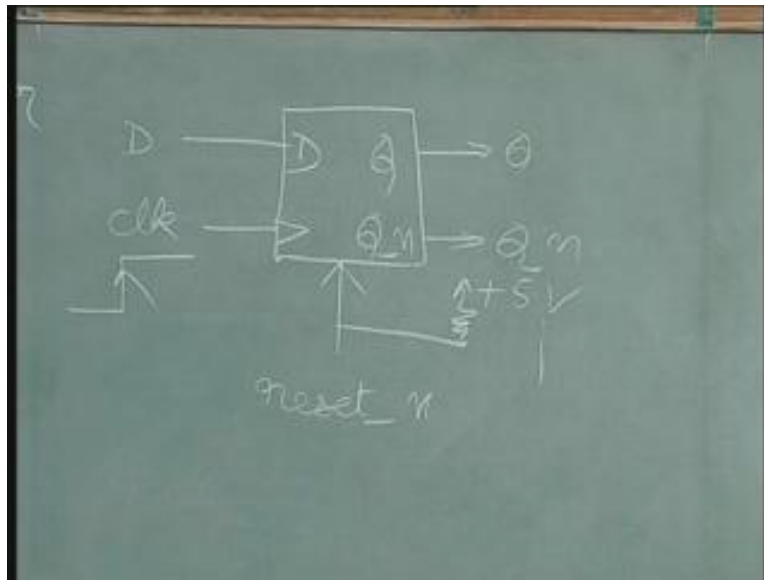 D D Q Q
clk Q_n Q_n
+5V
reset_n